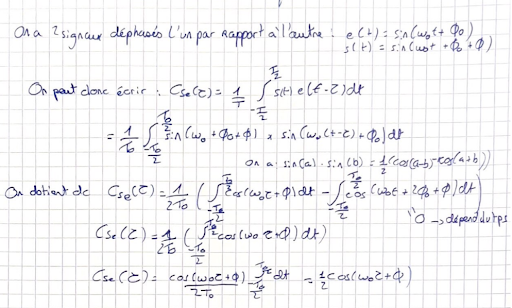 On a 2 signaux déphasés l'un par rapport à l'autre : e(t) = sin(ω₀t + ϕ₀)
s(t) = sin(ω₀t + ϕ₀ + ϕ)
On peut donc écrire : Cse(τ) = 1/T ∫_{-T/2}^{T/2} s(t) e(t-τ)dt
= 1/T₀ ∫_{-T₀/2}^{T₀/2} sin(ω₀ + ϕ₀ + ϕ) × sin(ω₀(t-τ) + ϕ₀)dt
on a : sin(a) · sin(b) = 1/2 (cos(a-b) - cos(a+b))
On obtient dc Cse(τ) = 1/2T₀ ( ∫_{-T₀/2}^{T₀/2} cos(ω₀τ + ϕ)dt - ∫_{-T₀/2}^{T₀/2} cos(ω₀t + 2ϕ₀ + ϕ)dt )
"0 → dépend du tps
Cse(τ) = 1/2T₀ ( ∫_{-T₀/2}^{T₀/2} cos(ω₀τ + ϕ)dt )
Cse(τ) = cos(ω₀τ + ϕ)/2T₀ ∫_{-T₀/2}^{T₀/2} dt = 1/2 cos(ω₀τ + ϕ)